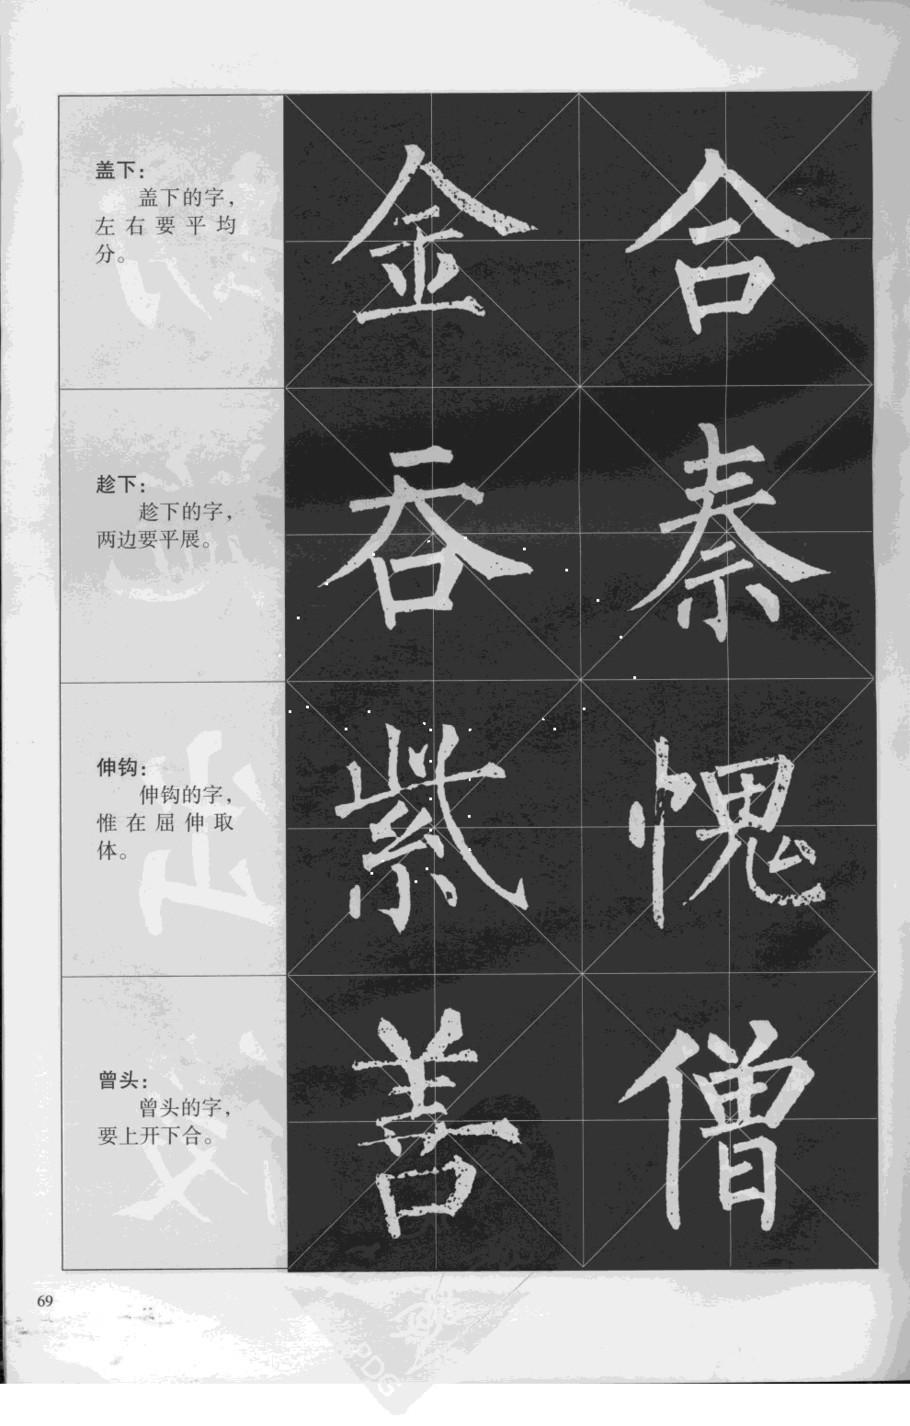 盖下：
盖下的字，
左右要平均
分。
金 合
趁下：
趁下的字，
两边要平展。
吞 秦
伸钩：
伸钩的字，
惟在屈伸取
体。
紫 愧
曾头：
曾头的字，
要上开下合。
善 僧
69
PDG